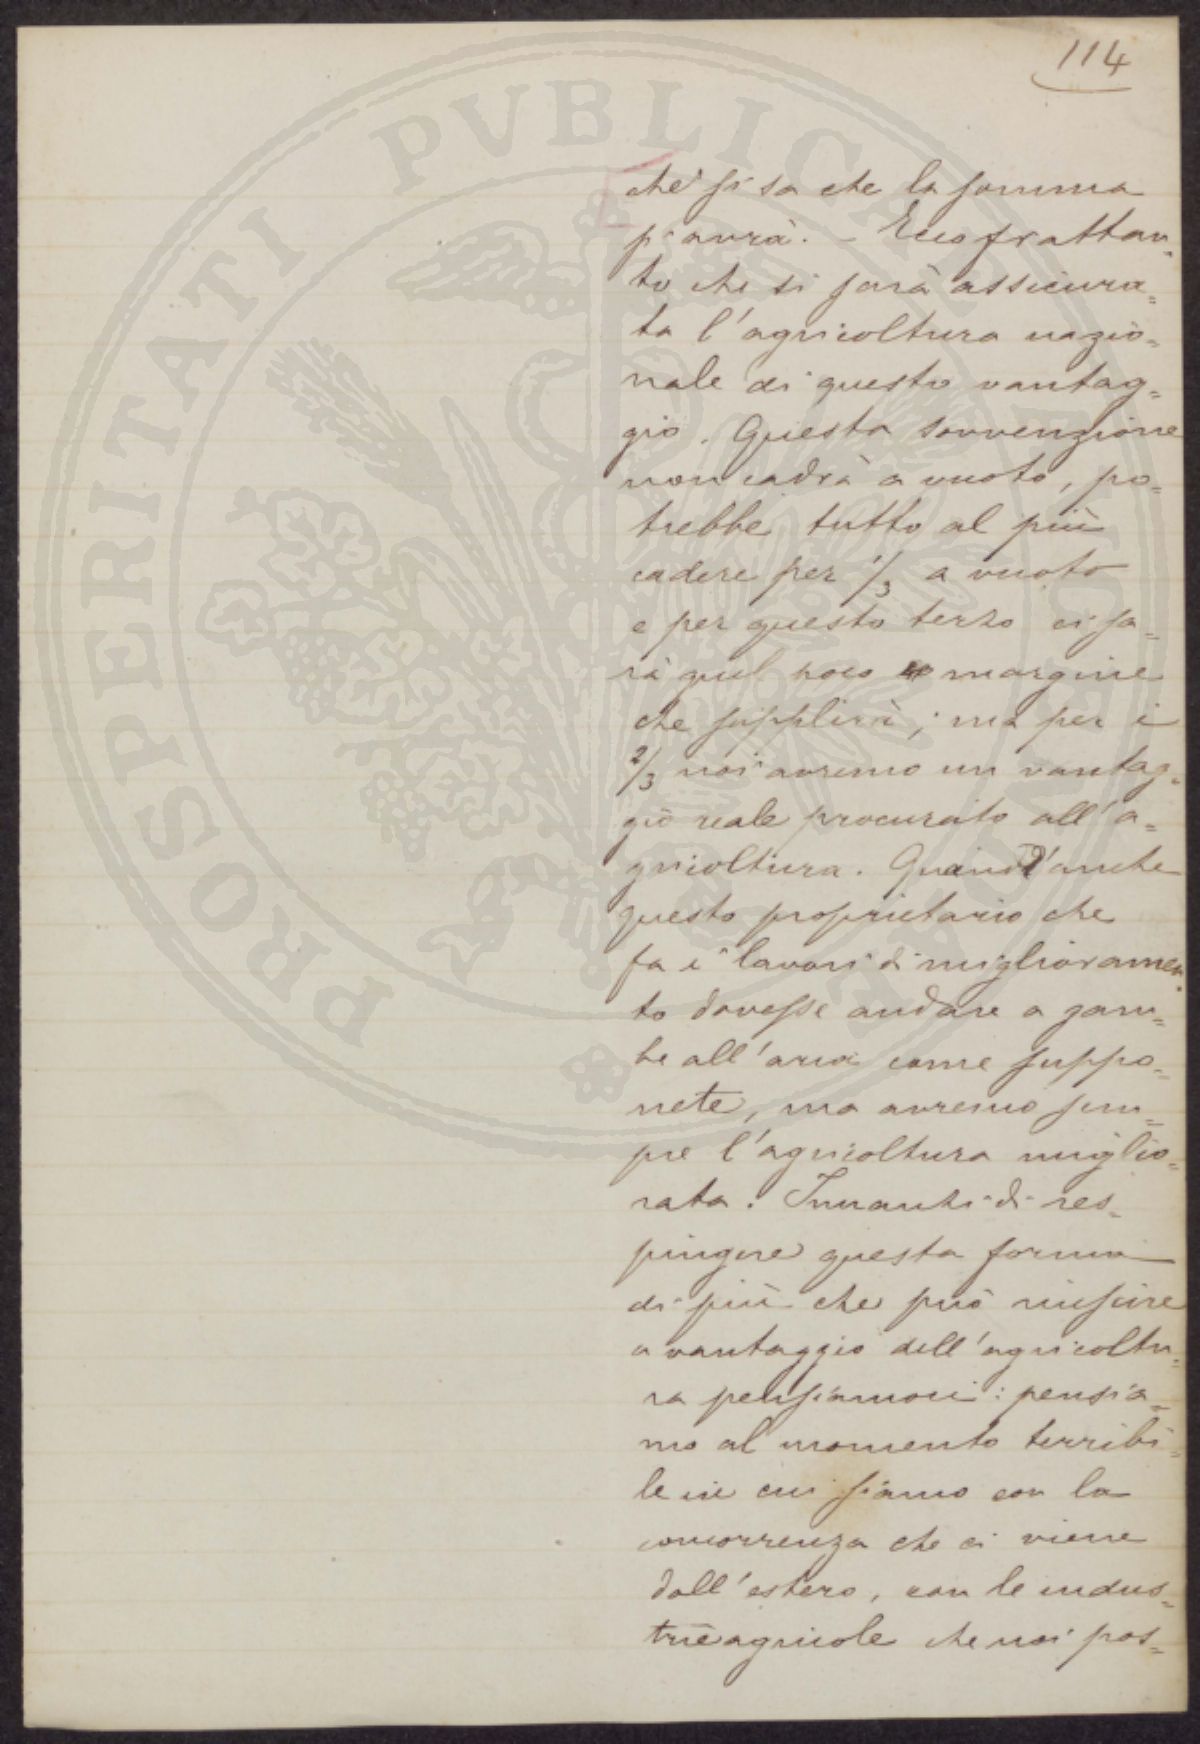 114
che si sa che la somma
si avrà. - Ecco frattan„
to che si sarà assicura„
ta l'agricoltura nazio„
nale di questo vantag„
gio. Questa sovvenzione
non cadrà a vuoto, po„
trebbe tutto al più
cadere per 1/3 a vuoto
e per questo terzo ci sa„
rà quel poco margine
che supplirà; ma per i
2/3 noi avremo un vantag„
gio reale procurato all'a„
gricoltura. Quand'anche
questo proprietario che
fa i lavori di miglioramen„
to dovesse andare a gam„
be all'aria come suppo„
nete, ma avremo sem„
pre l'agricoltura miglio„
rata. Innanzi di res„
pingere questa forma
di più che può riuscire
a vantaggio dell'agricoltu„
ra pensiamoci: pensia„
mo al momento terribi„
le in cui siamo con la
concorrenza che ci viene
dall'estero, con le indus„
trie agricole che noi pos„
PROSPERITATI PVBLICAE